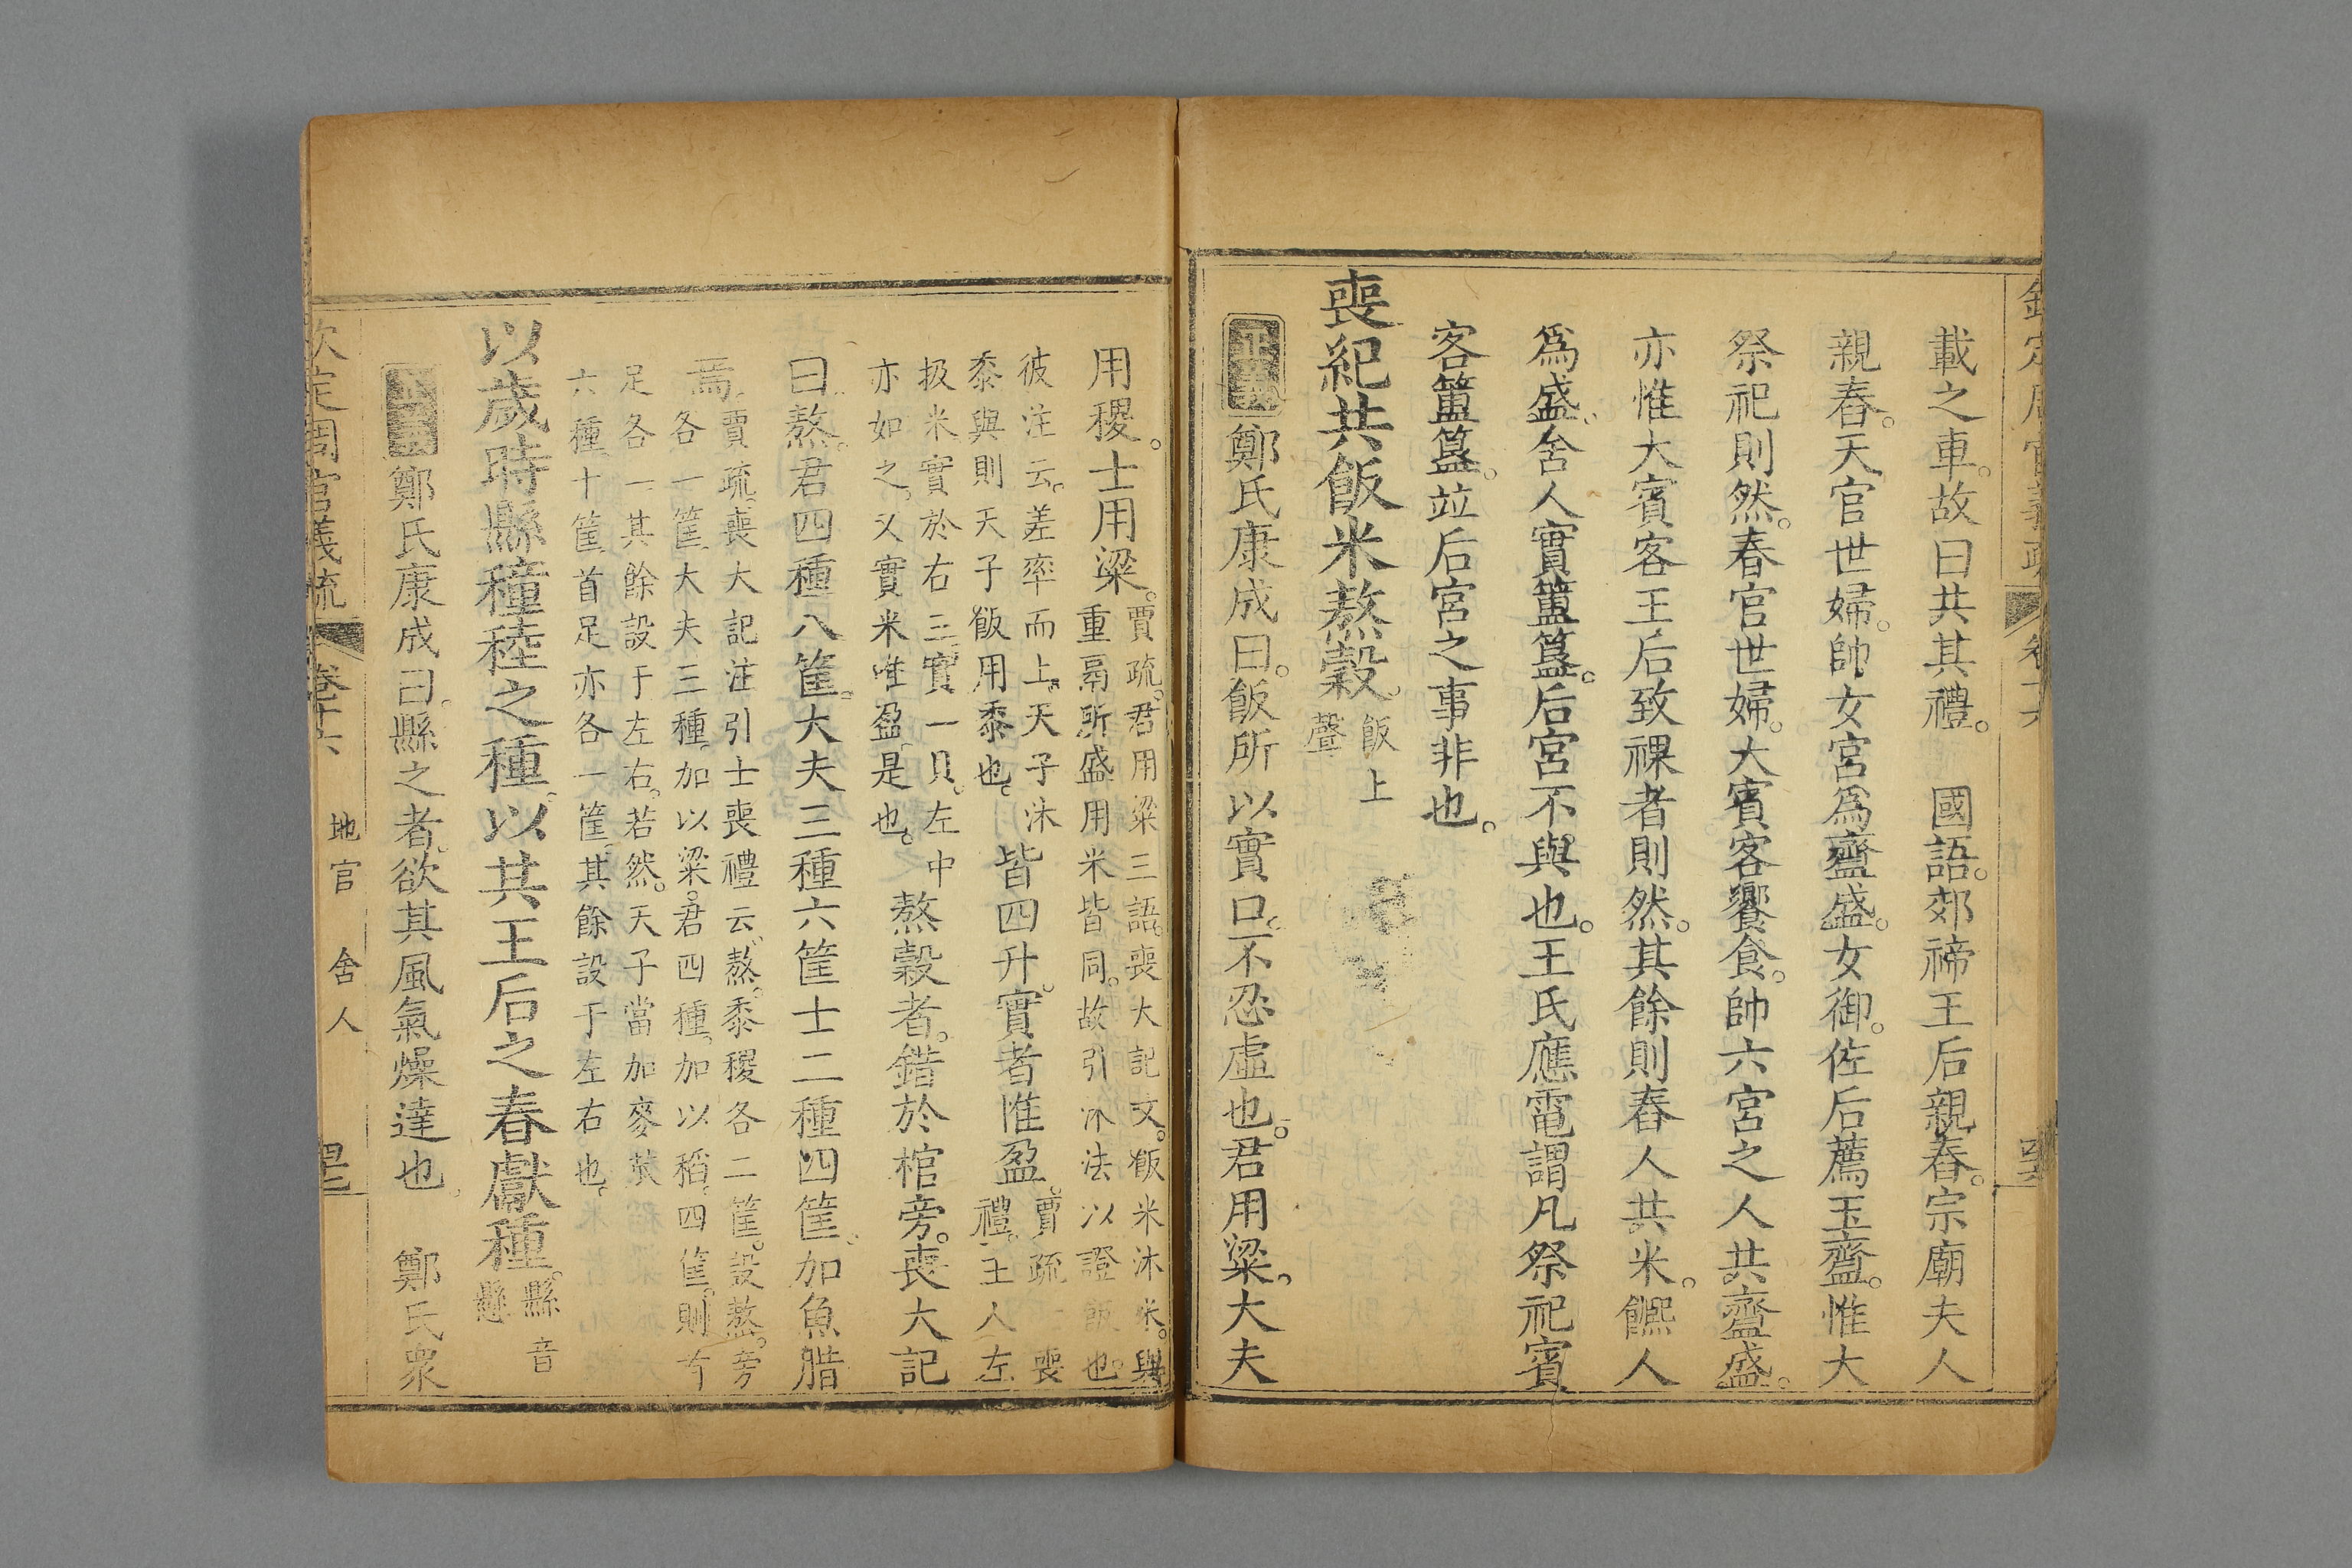 載之車。故曰共其禮。　國語。郊禘王后親舂。宗廟夫人
親舂。天官世婦。帥女宮爲齍盛。女御。佐后薦玉齍。惟大
祭祀則然。春官世婦。大賓客饗食。帥六宮之人共齍盛。
亦惟大賓客王后致祼者則然。其餘則舂人共米。饎人
爲盛。舍人實簠簋。后宮不與也。王氏應電謂凡祭祀賓
客簠簋。竝后宮之事非也。
喪紀共飯米熬穀。飯上聲
正義鄭氏康成曰。飯所以實口。不忍虛也。君用粱。大夫
用稷。士用粱。賈疏。君用粱三語。喪大記文。飯米沐米。與重鬲所盛用米皆同。故引沐法以證飯也。
彼注云。差率而上。天子沐黍與則天子飯用黍也。皆四升。實者惟盈。賈疏士喪禮。主人左
扱米實於右三實一貝。左中亦如之。又實米唯盈。是也。熬穀者。錯於棺旁。喪大記
曰熬。君四種八筐。大夫三種六筐士二種四筐。加魚腊
焉。賈疏。喪大記注引士喪禮云。熬。黍稷各二筐。設熬。旁各一筐。大夫三種。加以粱。君四種。加以稻。四筐。則首
足各一其餘設于左右。若然。天子當加麥苽六種十筐。首足亦各一筐。其餘設于左右也。
以歲時縣穜稑之種。以共王后之春獻種。縣音懸
正義鄭氏康成曰。縣之者。欲其風氣燥達也。　鄭氏眾
欽定周官義疏　卷十六　地官　舍人